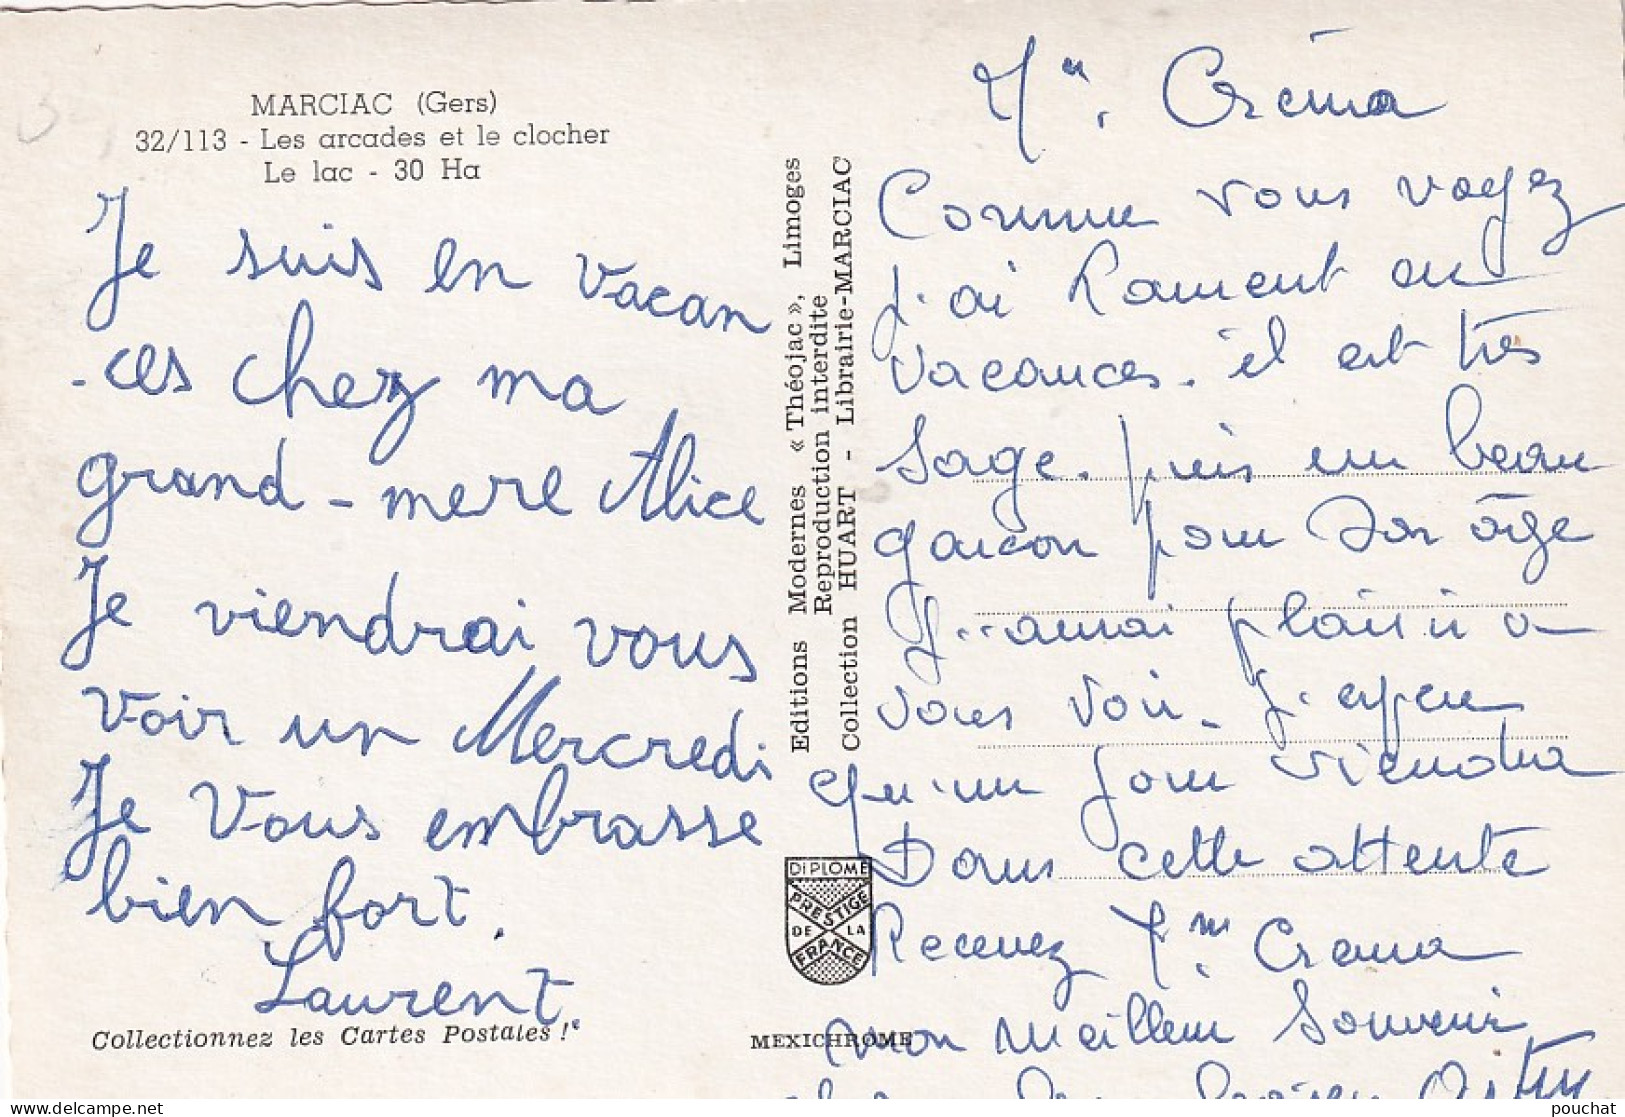 MARCIAC (Gers)
32/113 - Les arcades et le clocher
Le lac - 30 Ha
Je suis en vacan
-ces chez ma
grand-mere Alice
Je viendrai vous
voir un Mercredi
Je Vous embrasse
bien fort.
Laurent.
Collectionnez les Cartes Postales !
Editions Modernes « Théojac », Limoges
Reproduction interdite
Collection HUART - Librairie-MARCIAC
DIPLOME
PRESTIGE
DE LA
FRANCE
MEXICHROME
Créma
Comme vous voyez
j'ai Laurent en
vacances. il est très
sage. puis un beau
garcon pour son âge
J'aurai plaisir a
vous voir. J'espere
qu'un jour viendra
Dans cette attente
Recevez Crema
mon meilleur Souvenir
pouchat